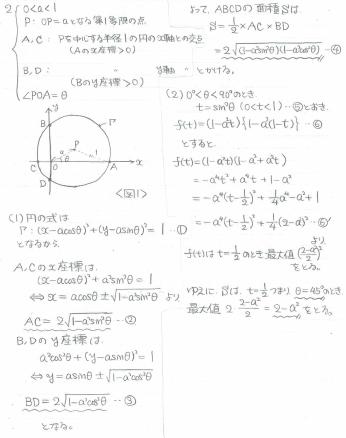 2 0<a<1
P: OP=aとなる第1象限の点
A,C: Pを中心とする半径1の円のx軸との交点
(Aのx座標>0)
B,D: 〃 y軸 〃
(Bのy座標>0)
∠POA=θ
y
B
Γ
P
a
1
θ
C
O
A
x
D
<図1>
(1) 円の式は
Γ: (x-acosθ)²+(y-asinθ)²=1 …①
となるから、
A,Cのx座標は、
(x-acosθ)²+a²sin²θ=1
⇔ x=acosθ±√1-a²sin²θ より
AC=2√1-a²sin²θ …②
B,Dのy座標は
a²cos²θ+(y-asinθ)²=1
⇔ y=asinθ±√1-a²cos²θ
BD=2√1-a²cos²θ …③
となる。
よって、ABCDの面積Sは、
S=1/2×AC×BD
=2√(1-a²sin²θ)(1-a²cos²θ) …④
とかける。
(2) 0°<θ<90°のとき、
t=sin²θ (0<t<1) …⑤とおき、
f(t)=(1-a²t){1-a²(1-t)} …⑥
とすると、
f(t)=(1-a²t)(1-a²+a²t)
=-a⁴t²+a⁴t+1-a²
=-a⁴(t-1/2)²+1/4a⁴-a²+1
=-a⁴(t-1/2)²+1/4(2-a²)² …⑥'
より
f(t)はt=1/2のとき最大値((2-a²)/2)²
をとる。
ゆえに、Sは、t=1/2つまりθ=45°のとき、
最大値 2・(2-a²)/2=2-a² をとる。